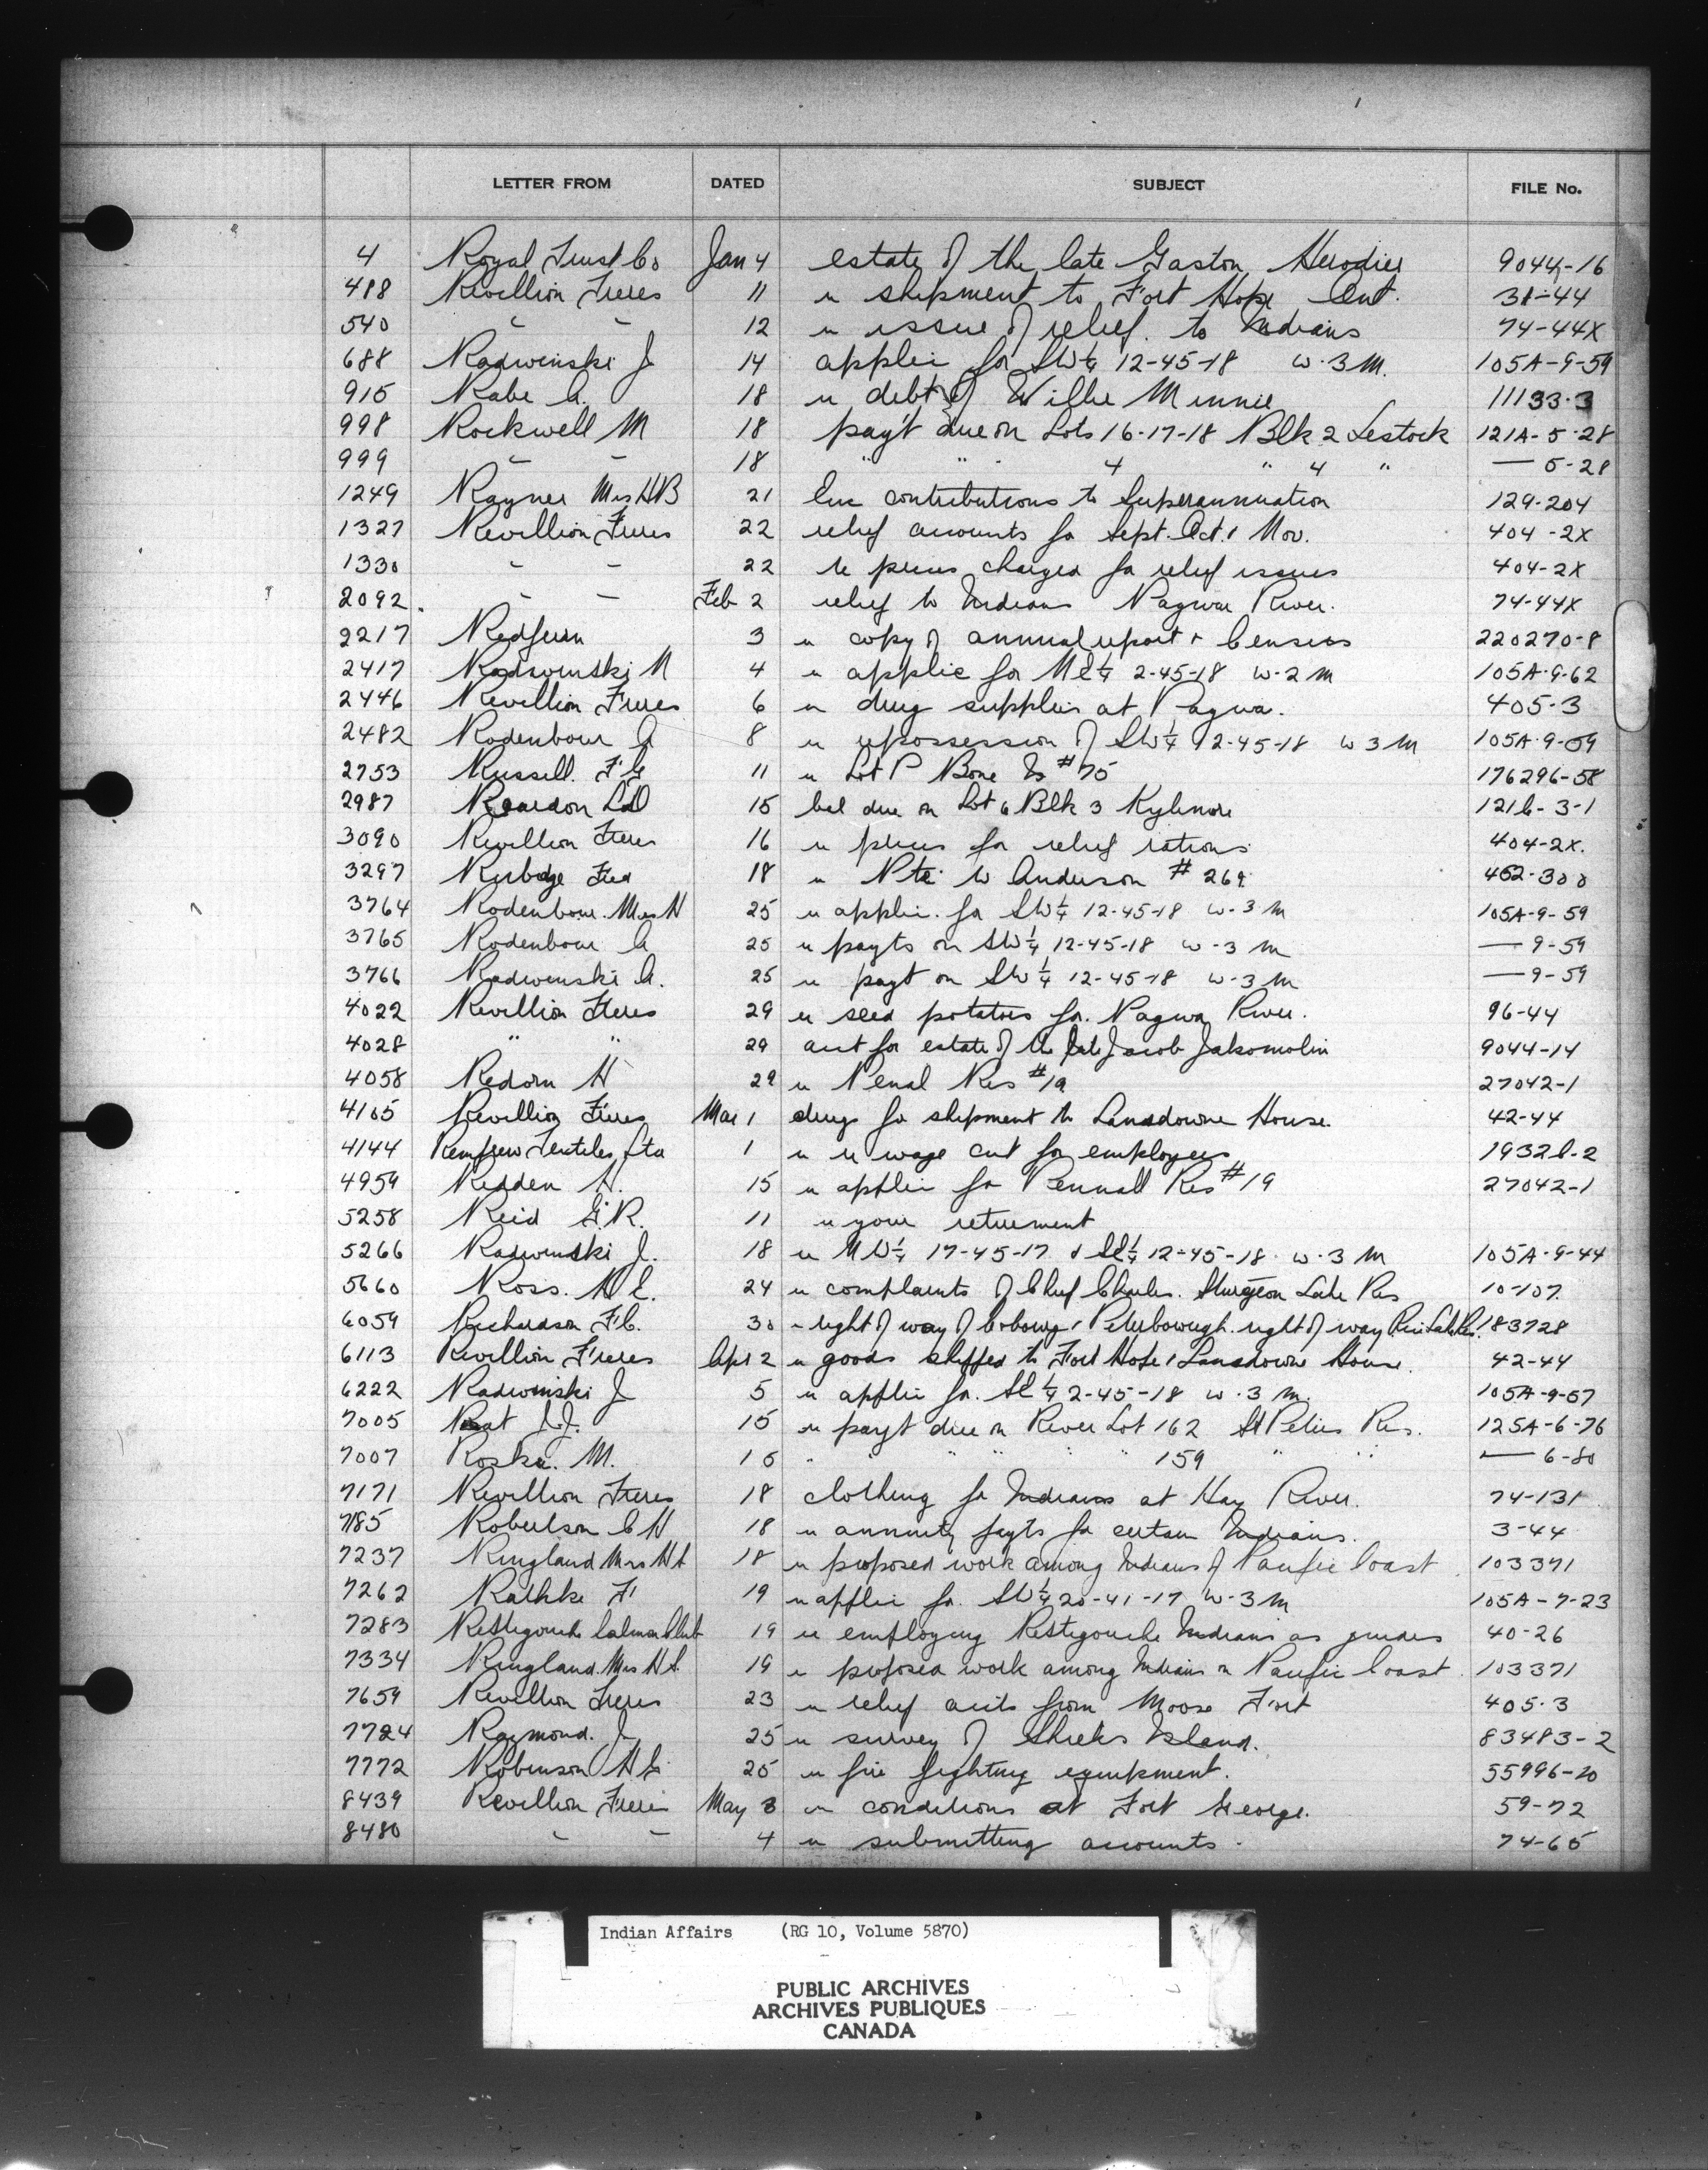 LETTER FROM DATED SUBJECT FILE No.
4 Royal Trust Co Jan 4 estate of the late Gaston Herodier 9044-16
488 Revillion Freres 11 re shipment to Fort Hope Ont. 31-44
540 " " 12 re issue of relief to Indians 74-44X
688 Radwinski J 14 applic for SW¼ 12-45-18 w.3 M. 105A-9-59
915 Rabe A. 18 re debt of Willie Minnie 11133-3
998 Rockwell M 18 pay't due on Lots 16-17-18 Blk 2 Lestock 121A-5-28
999 " " 18 " " " 4 " 4 " — 5-28
1249 Rayner Mrs HB 21 Enc contributions to Superannuation 129-204
1327 Revillion Freres 22 relief accounts for Sept. Oct. & Nov. 404-2X
1330 " " 22 re prices charged for relief issues 404-2X
2092. " " Feb 2 relief to Indians Pagwa River. 74-44X
2217 Redfern 3 re copy of annual report + Census 220270-8
2417 Radswinski N 4 re applic for NE¼ 2-45-18 w-2 M 105A-9-62
2446 Revillion Freres 6 re drug supplies at Pagwa. 405-3
2482 Rodenbour A 8 re repossession of SW¼ 12-45-18 w 3 M 105A-9-59
2753 Russell. F G 11 re Lot P Bone Is #75 176296-58
2987 Reardon LD 15 bal due on Lot 6 Blk 3 Kylemore 121C-3-1
3090 Revillion Freres 16 re prices for relief rations 404-2X.
3297 Rusbdge Fred 18 re Pte W Anderson # 269 452-300
3764 Rodenbour. Mrs H 25 re applic. for SW¼ 12-45-18 w-3 M 105A-9-59
3765 Rodenbour A 25 re payts on SW¼ 12-45-18 w-3 M — 9-59
3766 Radwinski A. 25 re payt on SW¼ 12-45-18 w-3 M — 9-59
4022 Revillion Freres 29 re seed potatoes for Pagwa River. 96-44
4028 " " 29 acct for estate of the late Jacob Jakomolin 9044-14
4058 Redom H 29 re Penal Res #19 27042-1
4105 Revillion Freres Mar 1 drugs for shipment to Lansdowne House. 42-44
4144 Renfrew Textiles Ltd 1 re wage cut for employees 19328-2
4959 Redden H. 15 re applic for Pennall Res #19 27042-1
5258 Reid G.R. 11 re your retirement
5266 Radwinski J. 18 re NW¼ 17-45-17 & SE¼ 12-45-18 w.3 M 105A-9-44
5660 Ross. H E. 24 re complaints of Chief Charles. Sturgeon Lake Res 10-107
6059 Richardson F C. 30 re right of way of Cobourg & Peterborough right of way Rice Lake Res. 183728
6113 Revillion Freres Apr 2 re goods shipped to Fort Hope & Lansdowne House. 42-44
6222 Radwinski J 5 re applic for SE¼ 2-45-18 w.3 M. 105A-9-57
7005 Rat J.J. 15 re payt due on River Lot 162 St Peters Res. 125A-6-76
7007 Roska. M. 15 " " " " 159 " " — 6-80
7171 Revillion Freres 18 clothing for Indians at Hay River. 74-131
7185 Robertson C H 18 re annuity payts for certain Indians. 3-44
7237 Ringland Mrs H A 18 re proposed work among Indians of Pacific Coast 103371
7262 Rathke F 19 re applic for SW¼ 20-41-17 w-3 M 105A-7-23
7283 Restigouche Salmon Club 19 re employing Restigouche Indians as guides 40-26
7334 Ringland. Mrs H A. 19 re proposed work among Indians on Pacific Coast 103371
7659 Revillion Freres 23 re relief accts from Moose Fort 405-3
7724 Raymond. J 25 re survey of Shieks Island. 83483-2
7772 Robinson H G 25 re fire fighting equipment. 55996-20
8439 Revillion Freres May 3 re conditions at Fort George. 59-72
8480 " " 4 re submitting accounts. 74-65
Indian Affairs (RG 10, Volume 5870)
PUBLIC ARCHIVES
ARCHIVES PUBLIQUES
CANADA